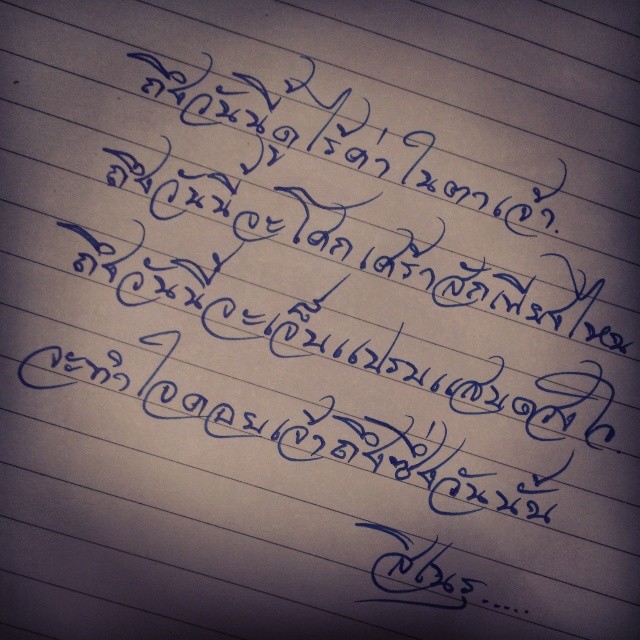 ถึงวันนี้ดูไร้ค่าในตาเจ้า.
ถึงวันนี้จะโศกเศร้าสักเพียงไหน
ถึงวันนี้จะเจ็บแปรบแสบดวงใจ.
จะทำใจคอยเจ้าถึงซึ่งวันนั้น